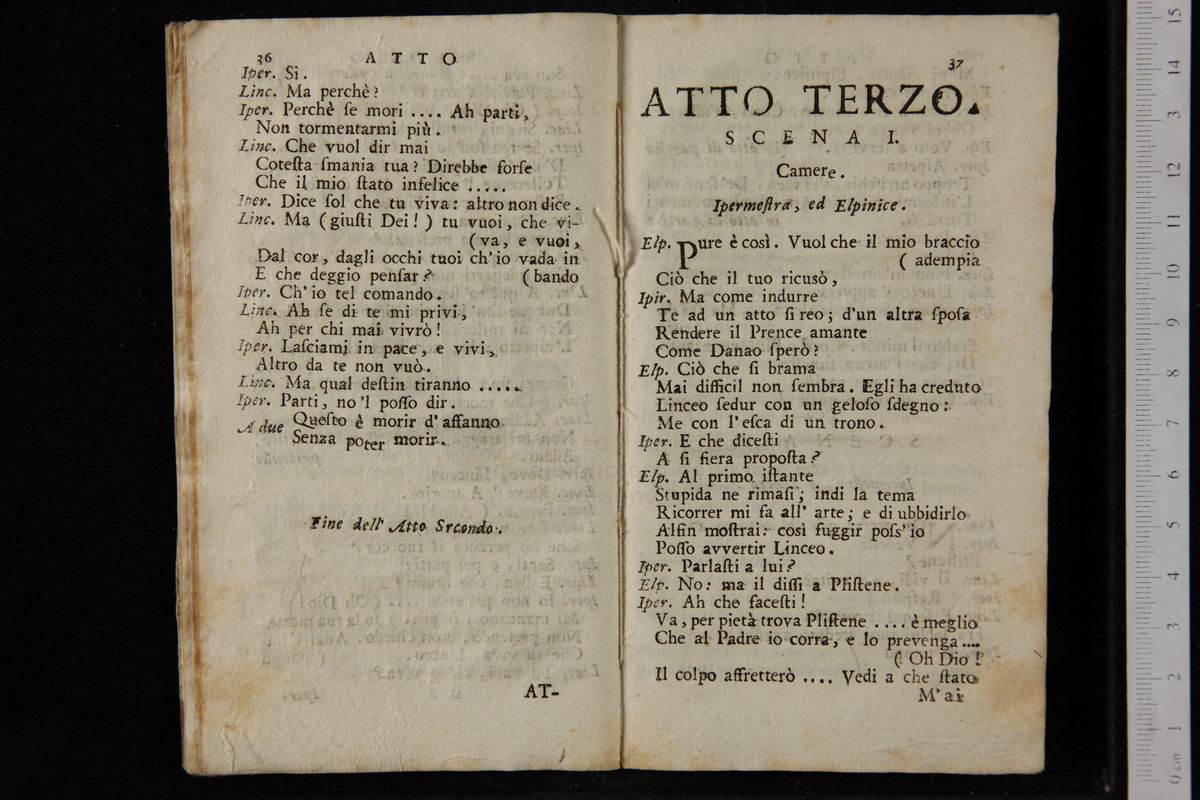 36 ATTO
Iper. Si.
Linc. Ma perchè?
Iper. Perchè ſe mori .... Ah parti,
Non tormentarmi più.
Linc. Che vuol dir mai
Coteſta ſmania tua? Direbbe forſe
Che il mio ſtato infelice .....
Iper. Dice ſol che tu viva: altro non dice.
Linc. Ma (giuſti Dei!) tu vuoi, che vi-
(va, e vuoi,
Dal cor, dagli occhi tuoi ch'io vada in
E che deggio penſar? (bando
Iper. Ch'io tel comando.
Linc. Ah ſe di te mi privi,
Ah per chi mai vivrò!
Iper. Laſciami in pace, e vivi,
Altro da te non vuò.
Linc. Ma qual deſtin tiranno .....
Iper. Parti, no'l poſſo dir.
A due Queſto è morir d'affanno
Senza poter morir.
Fine dell' Atto Srcondo.
AT-
37
ATTO TERZO.
SCENA I.
Camere.
Ipermeſtra, ed Elpinice.
Elp. Pure è così. Vuol che il mio braccio
( adempia
Ciò che il tuo ricusò,
Ipir. Ma come indurre
Te ad un atto ſi reo; d'un altra ſpoſa
Rendere il Prence amante
Come Danao ſperò?
Elp. Ciò che ſi brama
Mai difficil non ſembra. Egli ha creduto
Linceo ſedur con un geloſo ſdegno:
Me con l'eſca di un trono.
Iper. E che diceſti
A ſi fiera propoſta?
Elp. Al primo iſtante
Stupida ne rimaſi; indi la tema
Ricorrer mi fa all' arte; e di ubbidirlo
Alfin moſtrai: così fuggir poſs'io
Poſſo avvertir Linceo.
Iper. Parlaſti a lui?
Elp. No: ma il diſſi a Pliſtene.
Iper. Ah che faceſti!
Va, per pietà trova Pliſtene .... è meglio
Che al Padre io corra, e lo prevenga ....
( Oh Dio!
Il colpo affretterò .... Vedi a che ſtato
M'ai